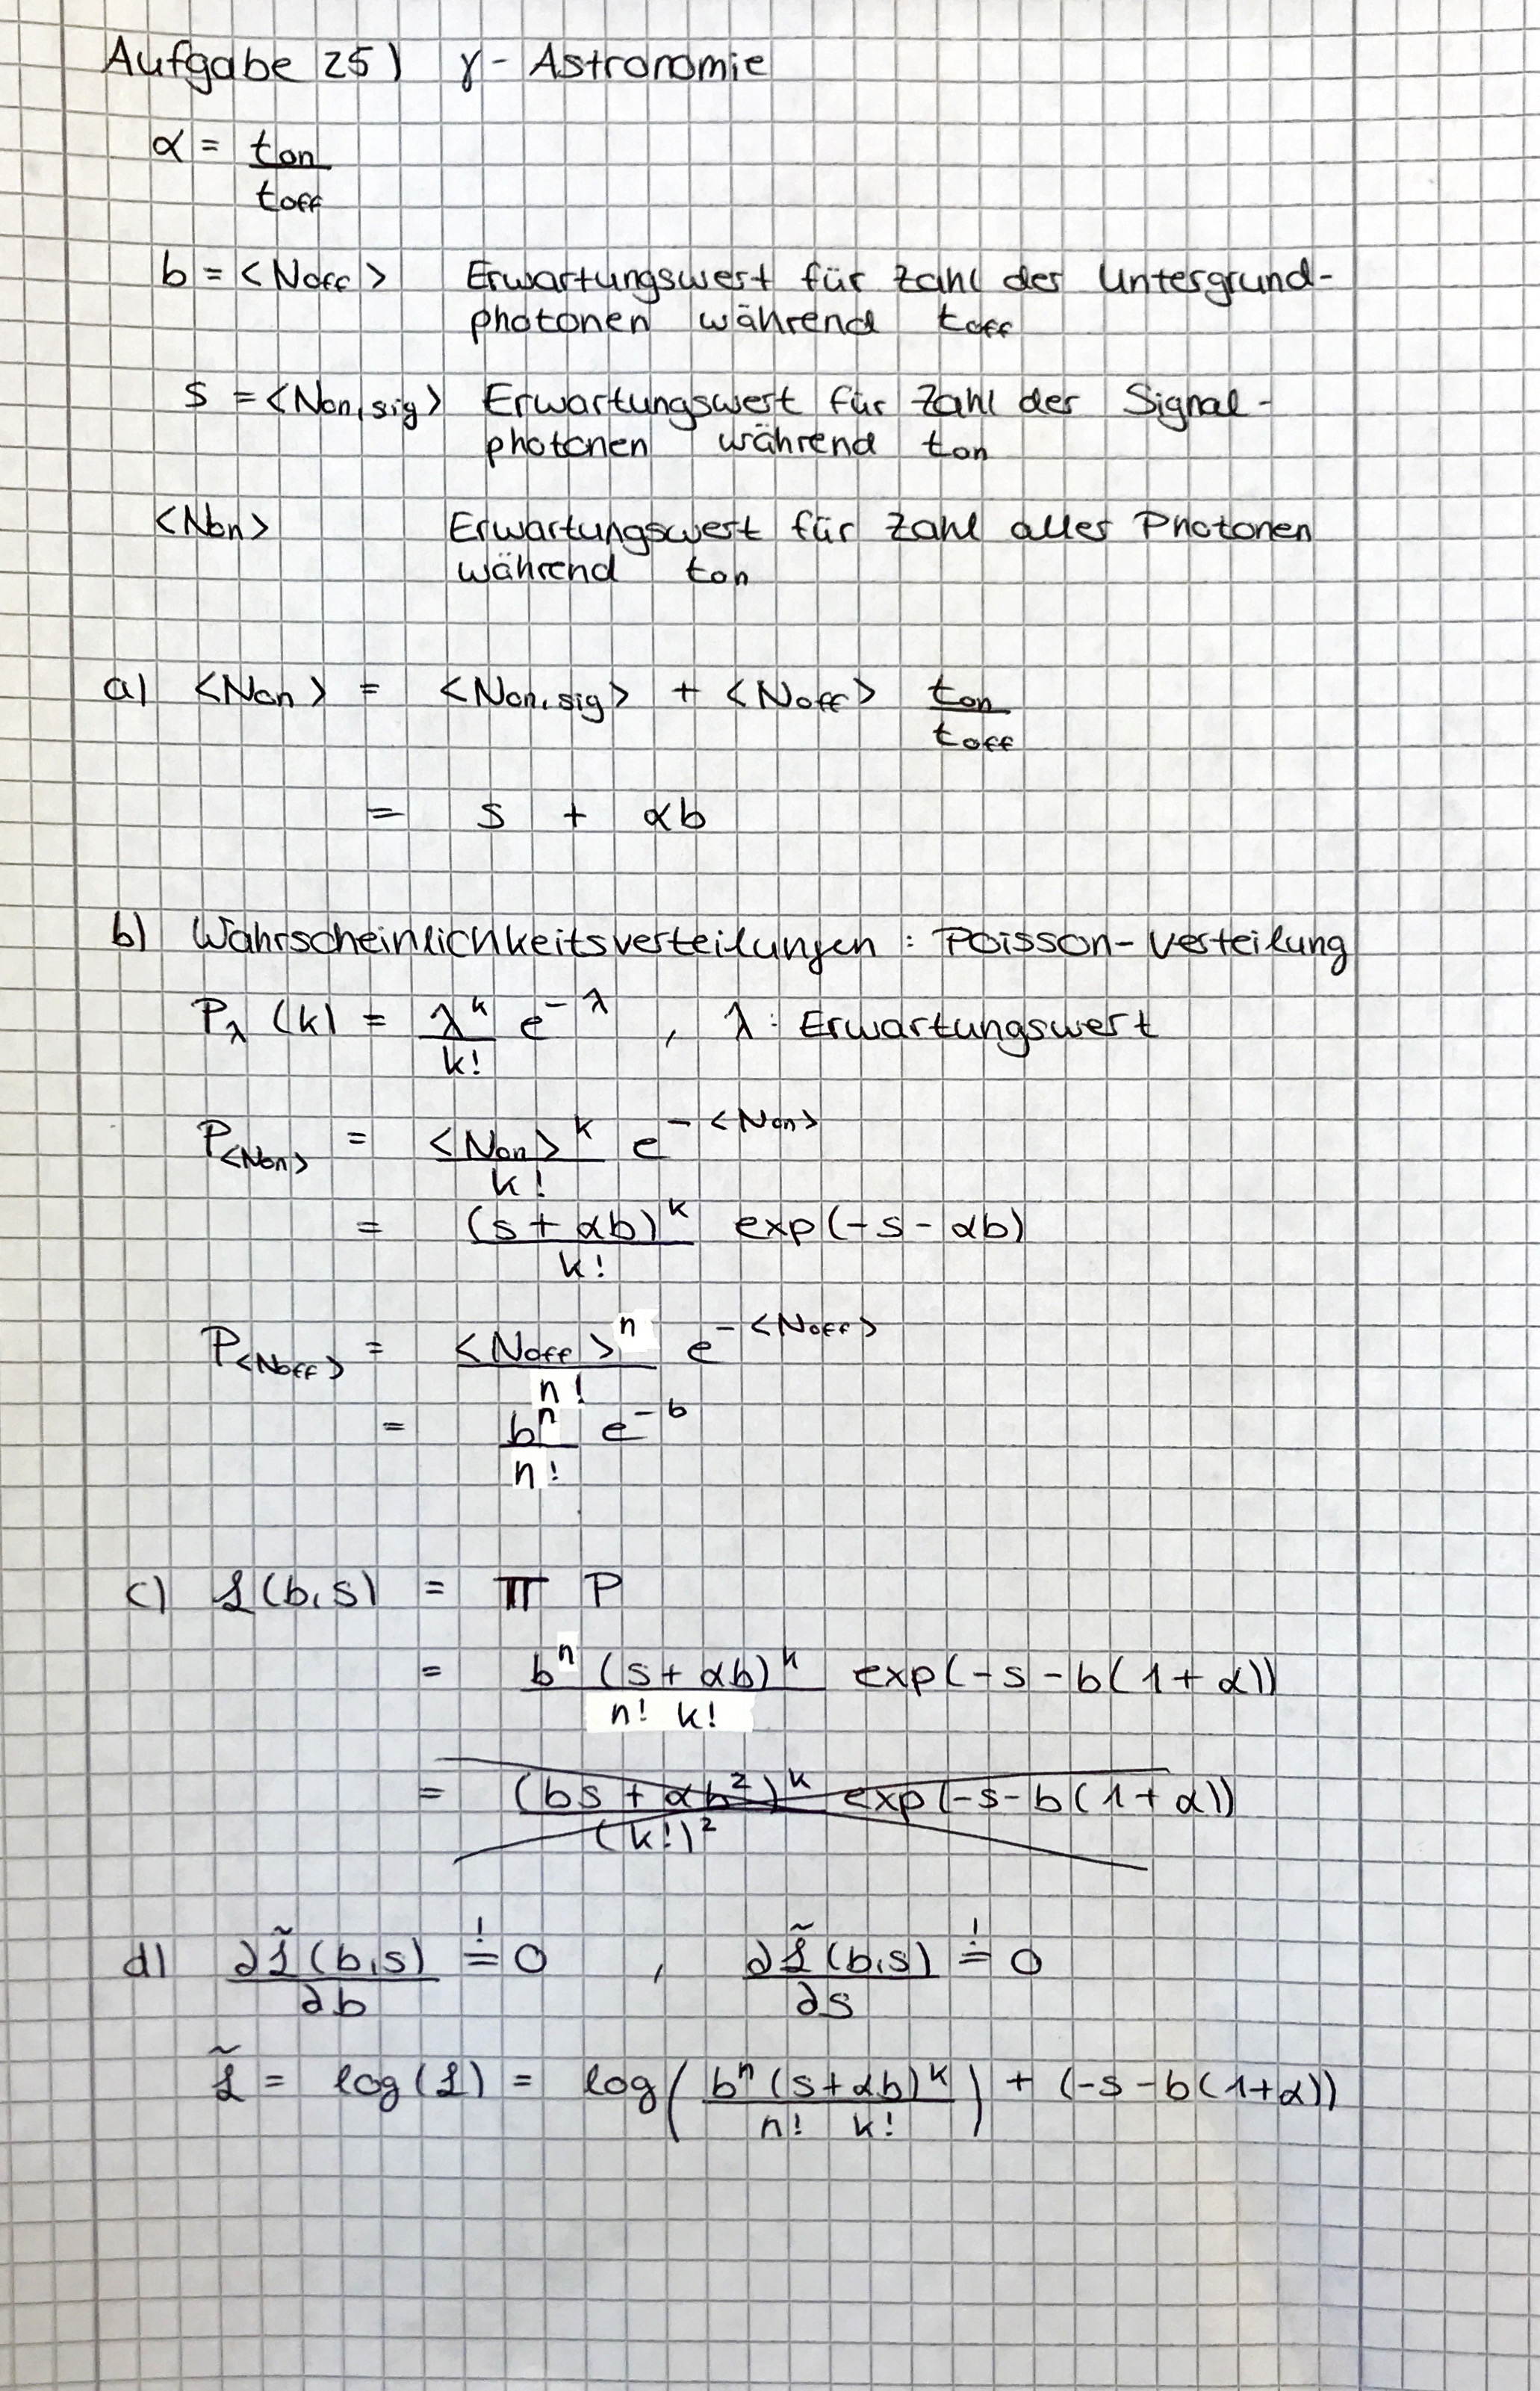 Aufgabe 25) γ - Astronomie
α = ton / toff
b = <Noff> Erwartungswert für Zahl der Untergrund-
photonen während toff
s = <Non,sig> Erwartungswert für Zahl der Signal-
photonen während ton
<Non> Erwartungswert für Zahl aller Photonen
während ton
a) <Non> = <Non,sig> + <Noff> ton / toff
= s + αb
b) Wahrscheinlichkeitsverteilungen : Poisson-Verteilung
Pλ (k) = λ^k / k! e^-λ , λ : Erwartungswert
P<Non> = <Non>^k / k! e^-<Non>
= (s + αb)^k / k! exp(-s - αb)
P<Noff> = <Noff>^n / n! e^-<Noff>
= b^n / n! e^-b
c) ℒ(b,s) = Π P
= b^n (s + αb)^k / n! k! exp(-s - b(1 + α))
= (bs + αb²)^k / (k!)² exp(-s - b(1 + α))
d) ∂ℒ̃(b,s) / ∂b != 0 , ∂ℒ̃(b,s) / ∂s != 0
ℒ̃ = log(ℒ) = log( b^n (s+αb)^k / n! k! ) + (-s - b(1+α))